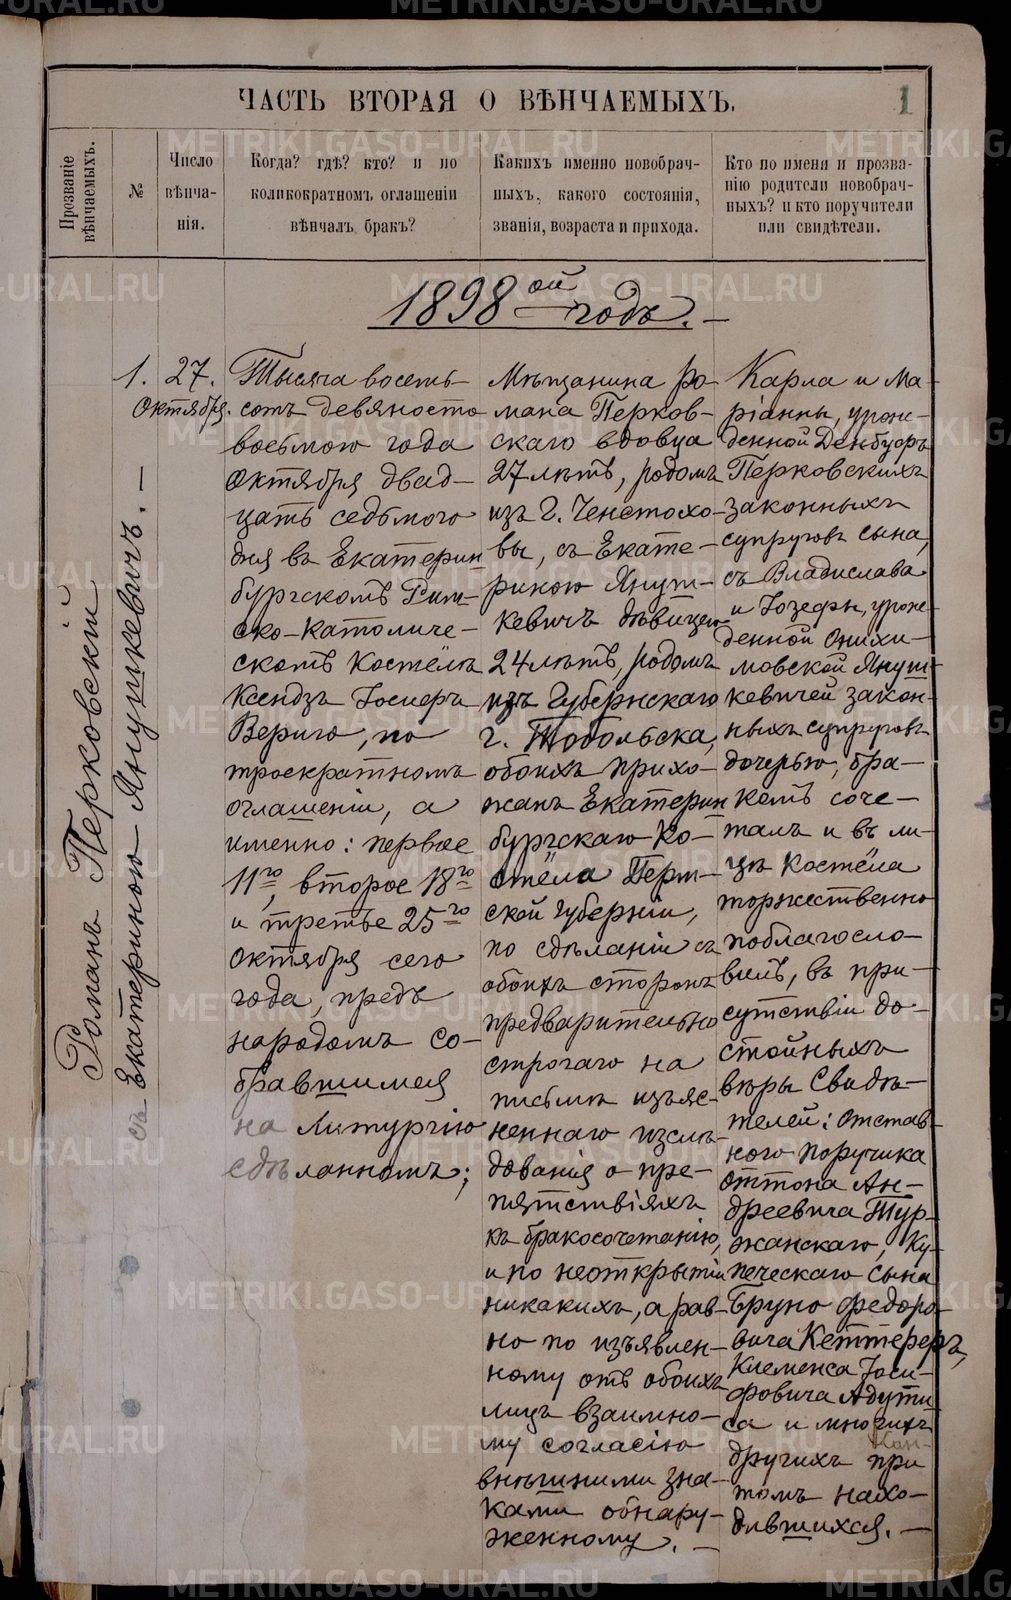 ЧАСТЬ ВТОРАЯ О ВѢНЧАЕМЫХЪ.
1
Прозваніе
вѣнчаемыхъ.
№
Число
вѣнча-
нія.
Когда? гдѣ? кто? и по
коликократномъ оглашеніи
вѣнчалъ бракъ?
Какихъ именно новобрач-
ныхъ, какого состоянія,
званія, возраста и прихода.
Кто по имени и прозва-
нію родители новобрач-
ныхъ? и кто поручители
или свидѣтели.
1898ой годъ.
Романъ Перковскій
съ Екатериною Янушкевичъ. —
1.
27.
Октября.
Тысяча восемь-
сотъ девяносто
восьмого года
Октября двад-
цать седьмого
дня въ Екатерин
бургскомъ Рим-
ско-католиче-
скомъ Костёлѣ
Ксендзъ Іосифъ
Вериго, по
троекратномъ
оглашеніи, а
именно: первое
11го, второе 18го
и третье 25го
Октября сего
года, предъ
народомъ со-
бравшимся
на Литургію
сдѣланномъ;
Мѣщанина Ро-
мана Перков-
скаго вдовца
27 лѣтъ, родомъ
изъ г. Ченстохо-
вы, съ Екате-
риною Януш-
кевичъ дѣвицею
24 лѣтъ, родомъ
изъ Губернскаго
г. Тобольска,
обоихъ прихо-
жанъ Екатерин
бургскаго Ко-
стёла Перм-
ской губерніи,
по сдѣланіи съ
обоихъ сторонъ
предварительно
строгаго на
письмѣ изъяс-
неннаго изслѣ-
дованія о пре-
пятствіяхъ
къ бракосочетанію,
и по неоткрытіи
никакихъ, а рав-
но по изъявлен-
ному отъ обоихъ
лицъ взаимно-
му согласію
внѣшними зна-
ками обнару-
женному. —
Карла и Ма-
ріанны, урож-
денной Денбуоръ
Перковскихъ
законныхъ
супруговъ сына,
съ Владислава
и Іозефы, урож-
денной Онихи-
мовской Януш-
кевичей закон-
ныхъ супруговъ
дочерью, бра-
комъ соче-
талъ и въ ли-
цѣ Костёла
торжественно
поблагосло-
вилъ, въ при-
сутствіи до-
стойныхъ
вѣры Свидѣ-
телей: отстав-
ного поручика
Оттона Ан-
дреевича Тур-
жанскаго, Ку-
печескаго сына
Бруно Федоро-
вича Кеттереръ,
Клеменса Іоси-
фовича Адути
са и многихъ
другихъ при
томъ нахо-
дившихся. —
METRIKI.GASO-URAL.RU